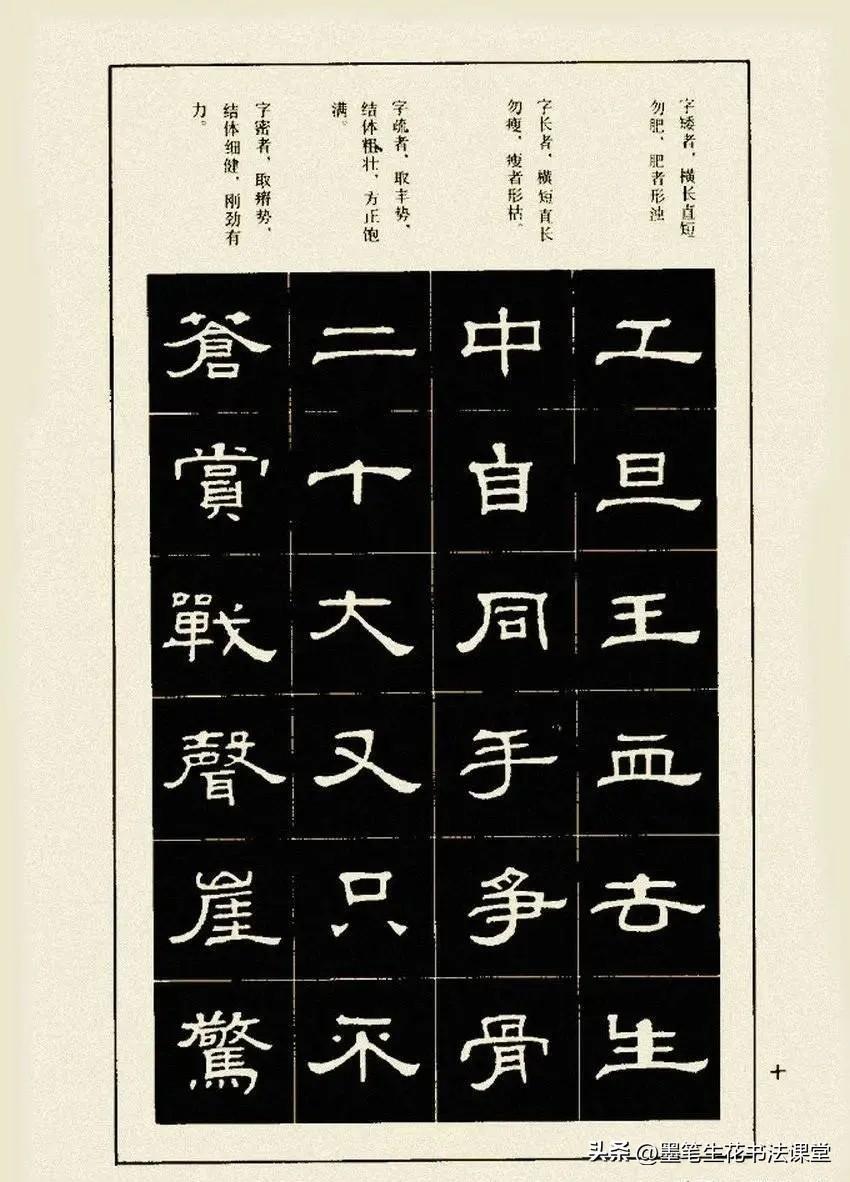 字矮者，横长直短
勿肥，肥者形浊
字长者，横短直长
勿瘦，瘦者形枯。
字疏者，取丰势，
结体粗壮，方正饱
满。
字密者，取瘠势，
结体细健，刚劲有
力。
工旦王血去生
中自同手争骨
二十大又只不
蒼賞戰聲崖驚
十
头条@墨笔生花书法课堂